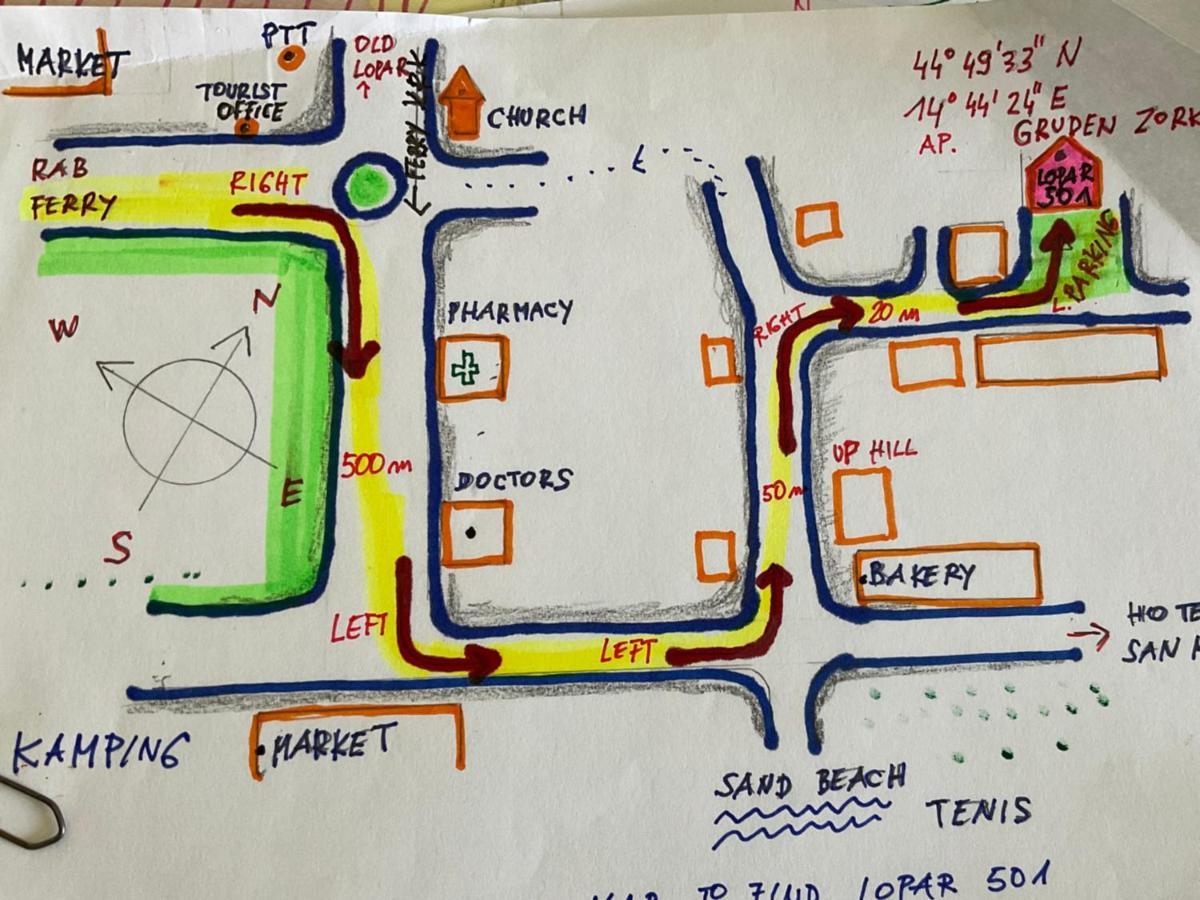 MARKET
PTT
TOURIST
OFFICE
OLD
LOPAR
FERRY KRK
CHURCH
44° 49'33" N
14° 44' 24" E
AP.
GRUDEN ZORK
LOPAR
501
RAB
FERRY
RIGHT
L. PARKING
N
W
S
E
PHARMACY
RIGHT
20 m
500 m
DOCTORS
50 m
UP HILL
BAKERY
LEFT
LEFT
HOTE
SAN
KAMPING
MARKET
SAND BEACH
TENIS
MAP TO FIND LOPAR 501